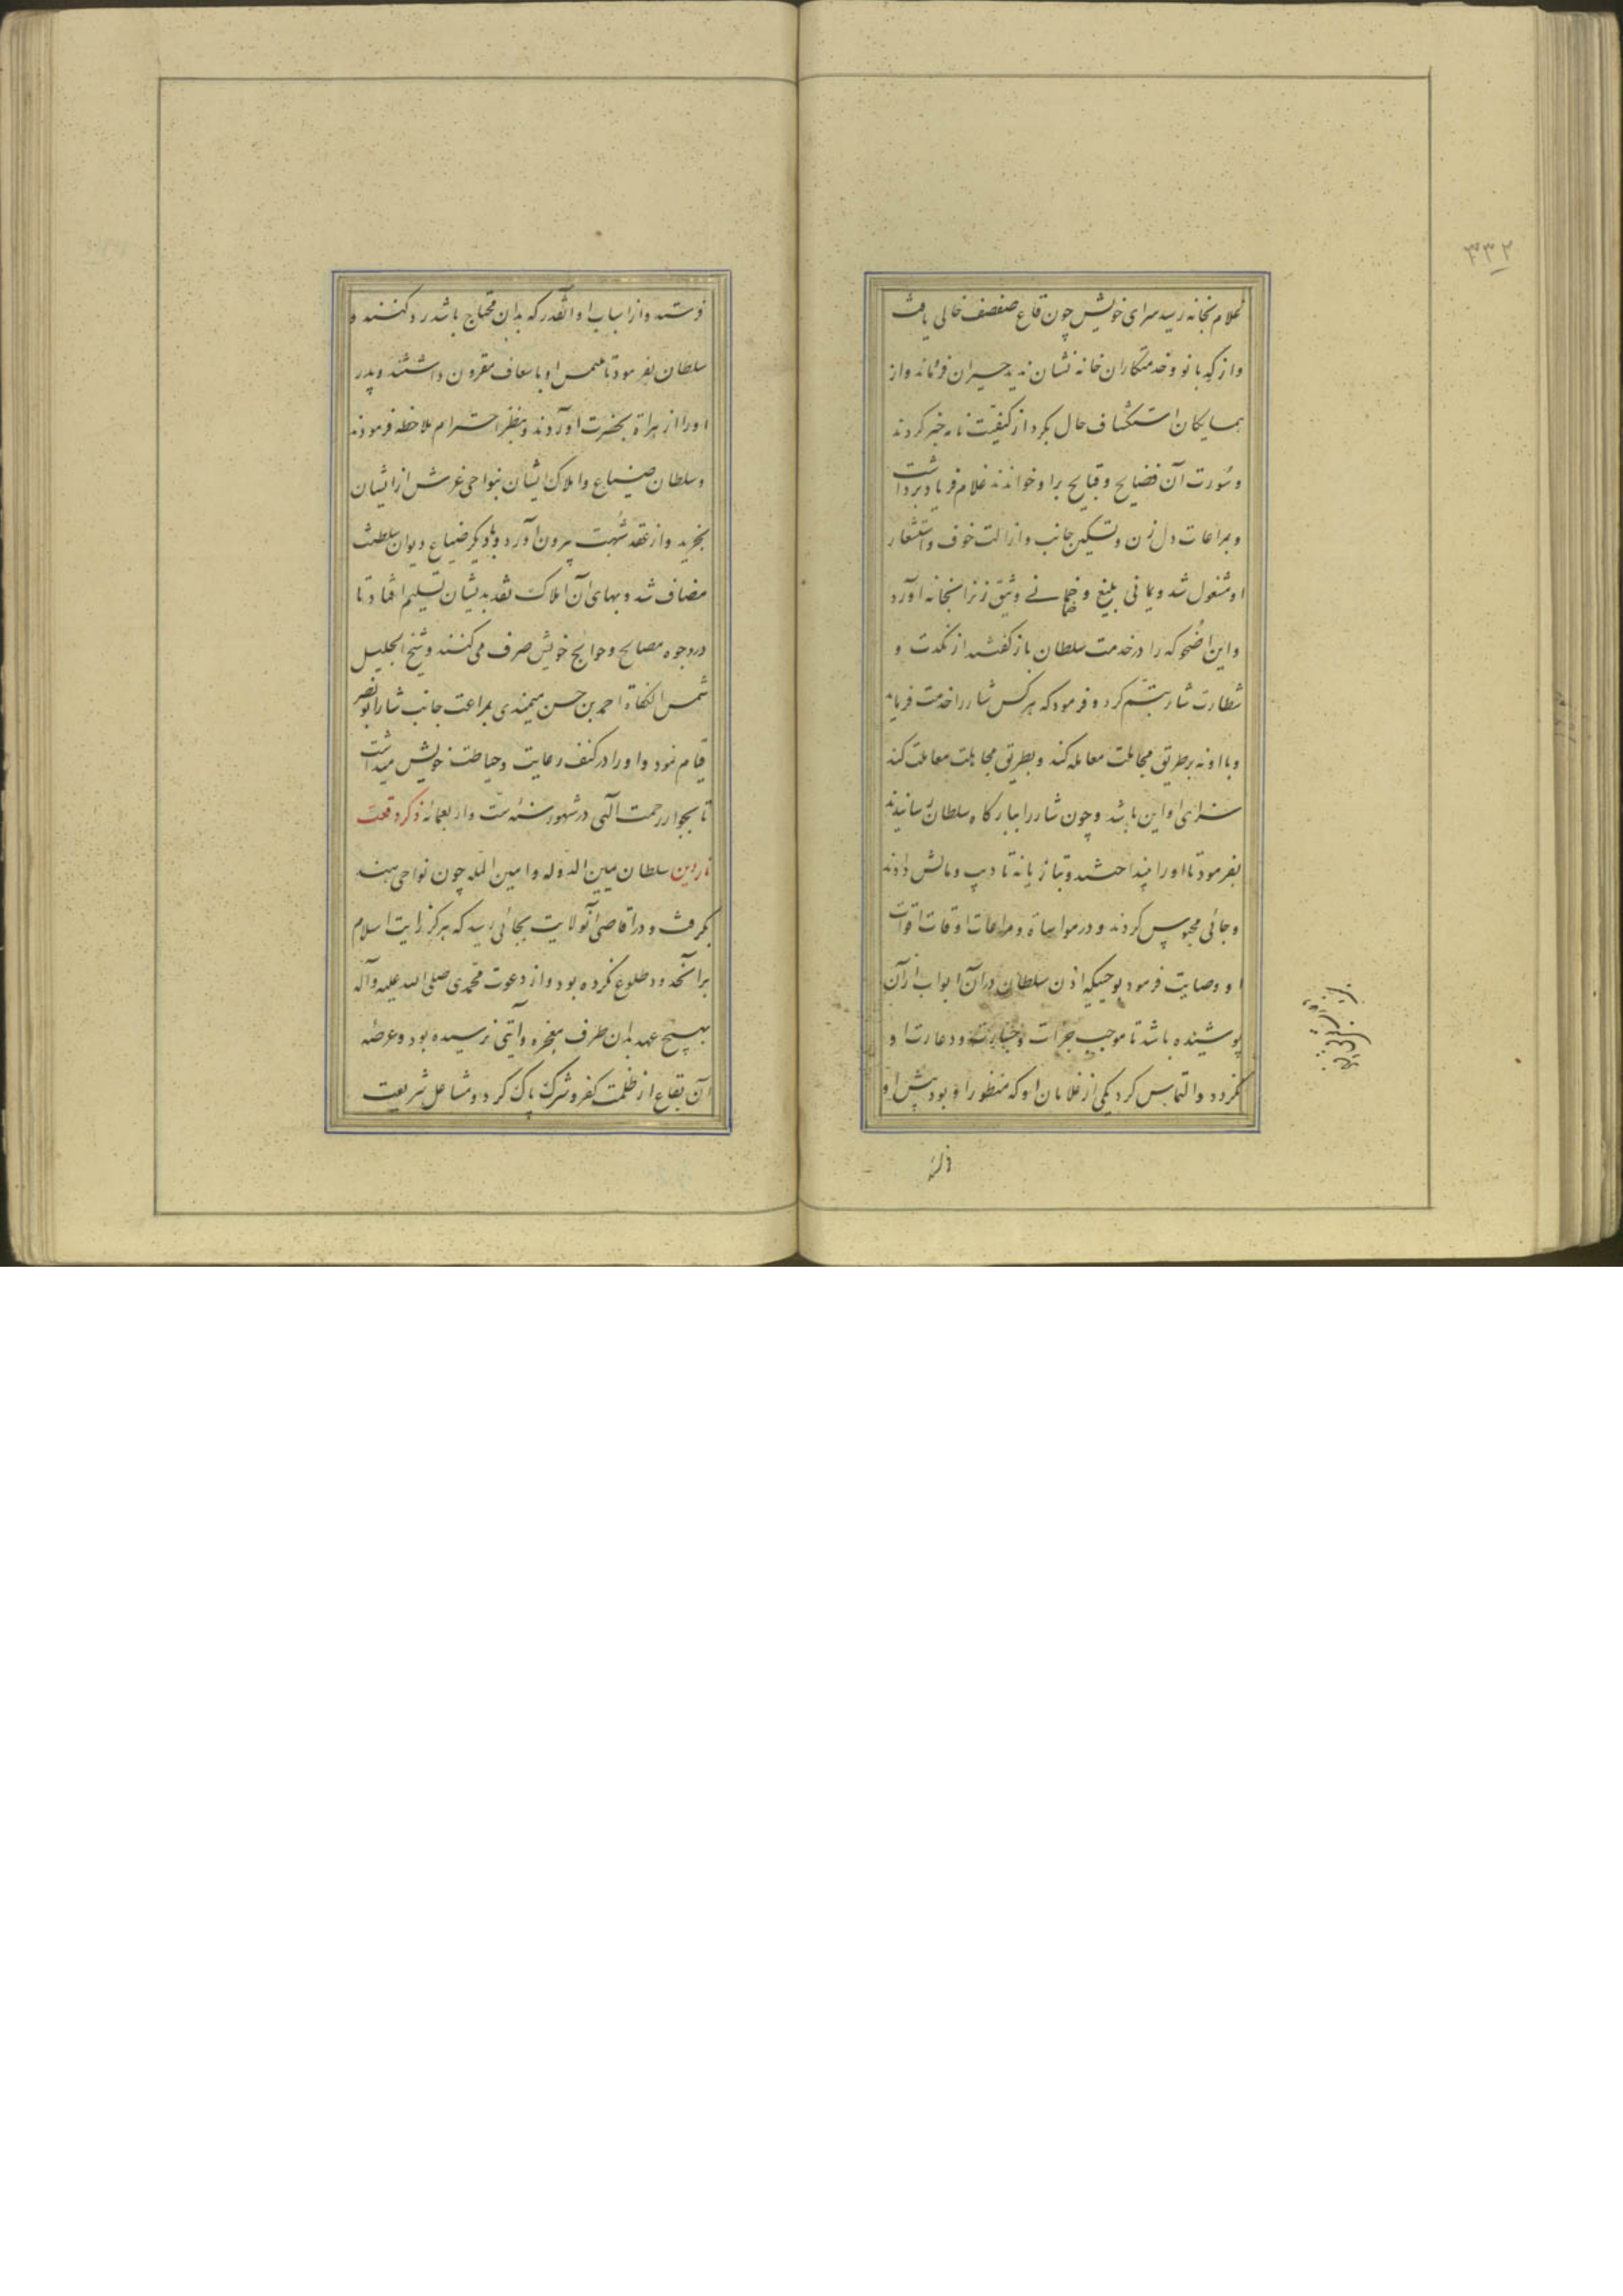 غلام بخانه رسید سرای خویش چون قاع صفصف خالی یافت
واز کدبانو وخدمتکاران خانه نشان ندید حیران فرو ماند واز
همسایکان استکشاف حال بکرد از کیفیت نامه خبر کردند
وسورت آن فضایح وقبایح برا وخواندند غلام فریاد برداشت
وبمراعات دل زن وتسکین جانب وازالت خوف واستشعار
او مشغول شد وبایمانی بلیغ وضمانی وثیق زنرا بخانه آورد
واین اضحوکه را در خدمت سلطان باز کفتند از نکدت و
شطارت شار تبسّم کرد و فرمود که هرکس شار را خدمت فرماید
وبا او نه برطریق مجاملت معامله کند وبطریق مجابلت معاملت کند
سزای او این باشد وچون شار را ببارکاه سلطان رسانیدند
بفرمود تا اورا بینداختند وبتازیانه تادیب ومالش دادند
وجائی محبوس کردند ودر مواساة ومراعات اوقات اقوات
او وصایت فرمود بوجهیکه اذن سلطان دران ابواب ازآن
پوشیده باشد تا موجب جرات وجسارت ودعارت او
نکردد والتماس کرد یکی از غلامان او که منظور او بود پیش او
۳۳۲
فرستند وازاسباب او انقدر که بدان محتاج باشد رد کنند و
سلطان بفرمود تا ملتمس او باسعاف مقرون داشتند وپدر
اورا از هراة بحضرت آوردند وبنظر احترام ملاحظه فرمودند
وسلطان ضیاع واملاک ایشان بنواحی غرش از ایشان
بخرید واز عقد شبهت بیرون آورد وبا دیکر ضیاع دیوان سلطنت
مضاف شد وبهای آن املاک بنقد بدیشان تسلیم افتاد تا
در وجوه مصالح وحوایج خویش صرف می کنند وشیخ الجلیل
شمس الکفاة احمد بن حسن میمندی بمراعت جانب شار ابو نصر
قیام نمود واورا در کنف رعایت وحیاطت خویش میداشت
تا بجوار رحمت الهی در شهور سنه ست واربعمائه ذکر وقعت
ناردین سلطان یمین الدوله وامین الملّه چون نواحی هند
بکرفت ودر اقاصی آنولایت بجائی رسید که هرکز رایت اسلام
برآنحدود طلوع نکرده بود واز دعوت محمدی صلی الله علیه وآله
بهیچ عهد بدان طرف معجزه وآیتی نرسیده بود وعرصه
آن بقاع از ظلمت کفر وشرک پاک کرد ومشاعل شریعت